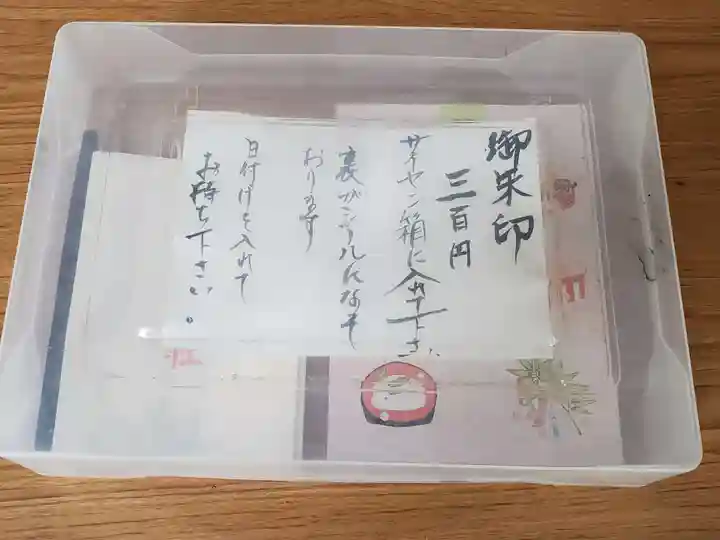 御朱印
三百円
サイセン箱に入れて下さい
裏がシールになって
おります
日付けを入れて
お持ち下さい。